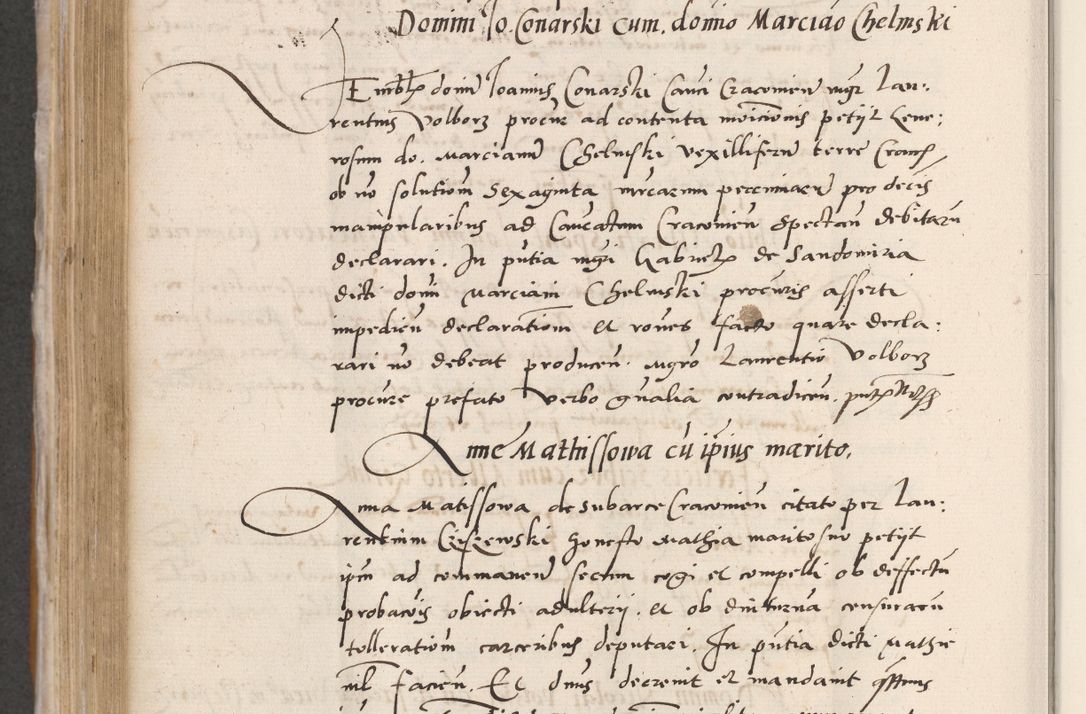 Domini Jo. Conarski cum. domno Marciāo Chelmski
domī Joannis Conarski Cani Cracovień mgr Lau:
rentius Volborz procur ad contenta moīcionis petijt gene:
rosum do. Marcianū Chelmski vexilliferū terre Cracō
ob nō solutionī sexaginta mrcarum pecuniarū pro decis
manipularibus ad Cancatum Cracovień spectań debitarū
declarari. In pn̄tia mgri Gabrielis de Sandomiria
dicti domī Marciani Chelmski procuris asserti
impedień declarationī et rones facto quare decla:
rari nō debeat produceń. Mgro Laurentio Volborz
procure prefato verbo gn̄alia contradiceń.
Anne Mathissowa cū ipius marito.
Anna Matissowa de suburbe Cracovień citato per Lau:
rentium honesto Mathia marito suo petijt
ipm ad commanenđ secum cogi et compelli ob deffectū
probacōis obiecti adulterij. et ob diuturnā censurarū
tollerationī carceribus deputari. In pn̄tia dicti Mathie
nil facień. Et dnus decrevit et mandavit